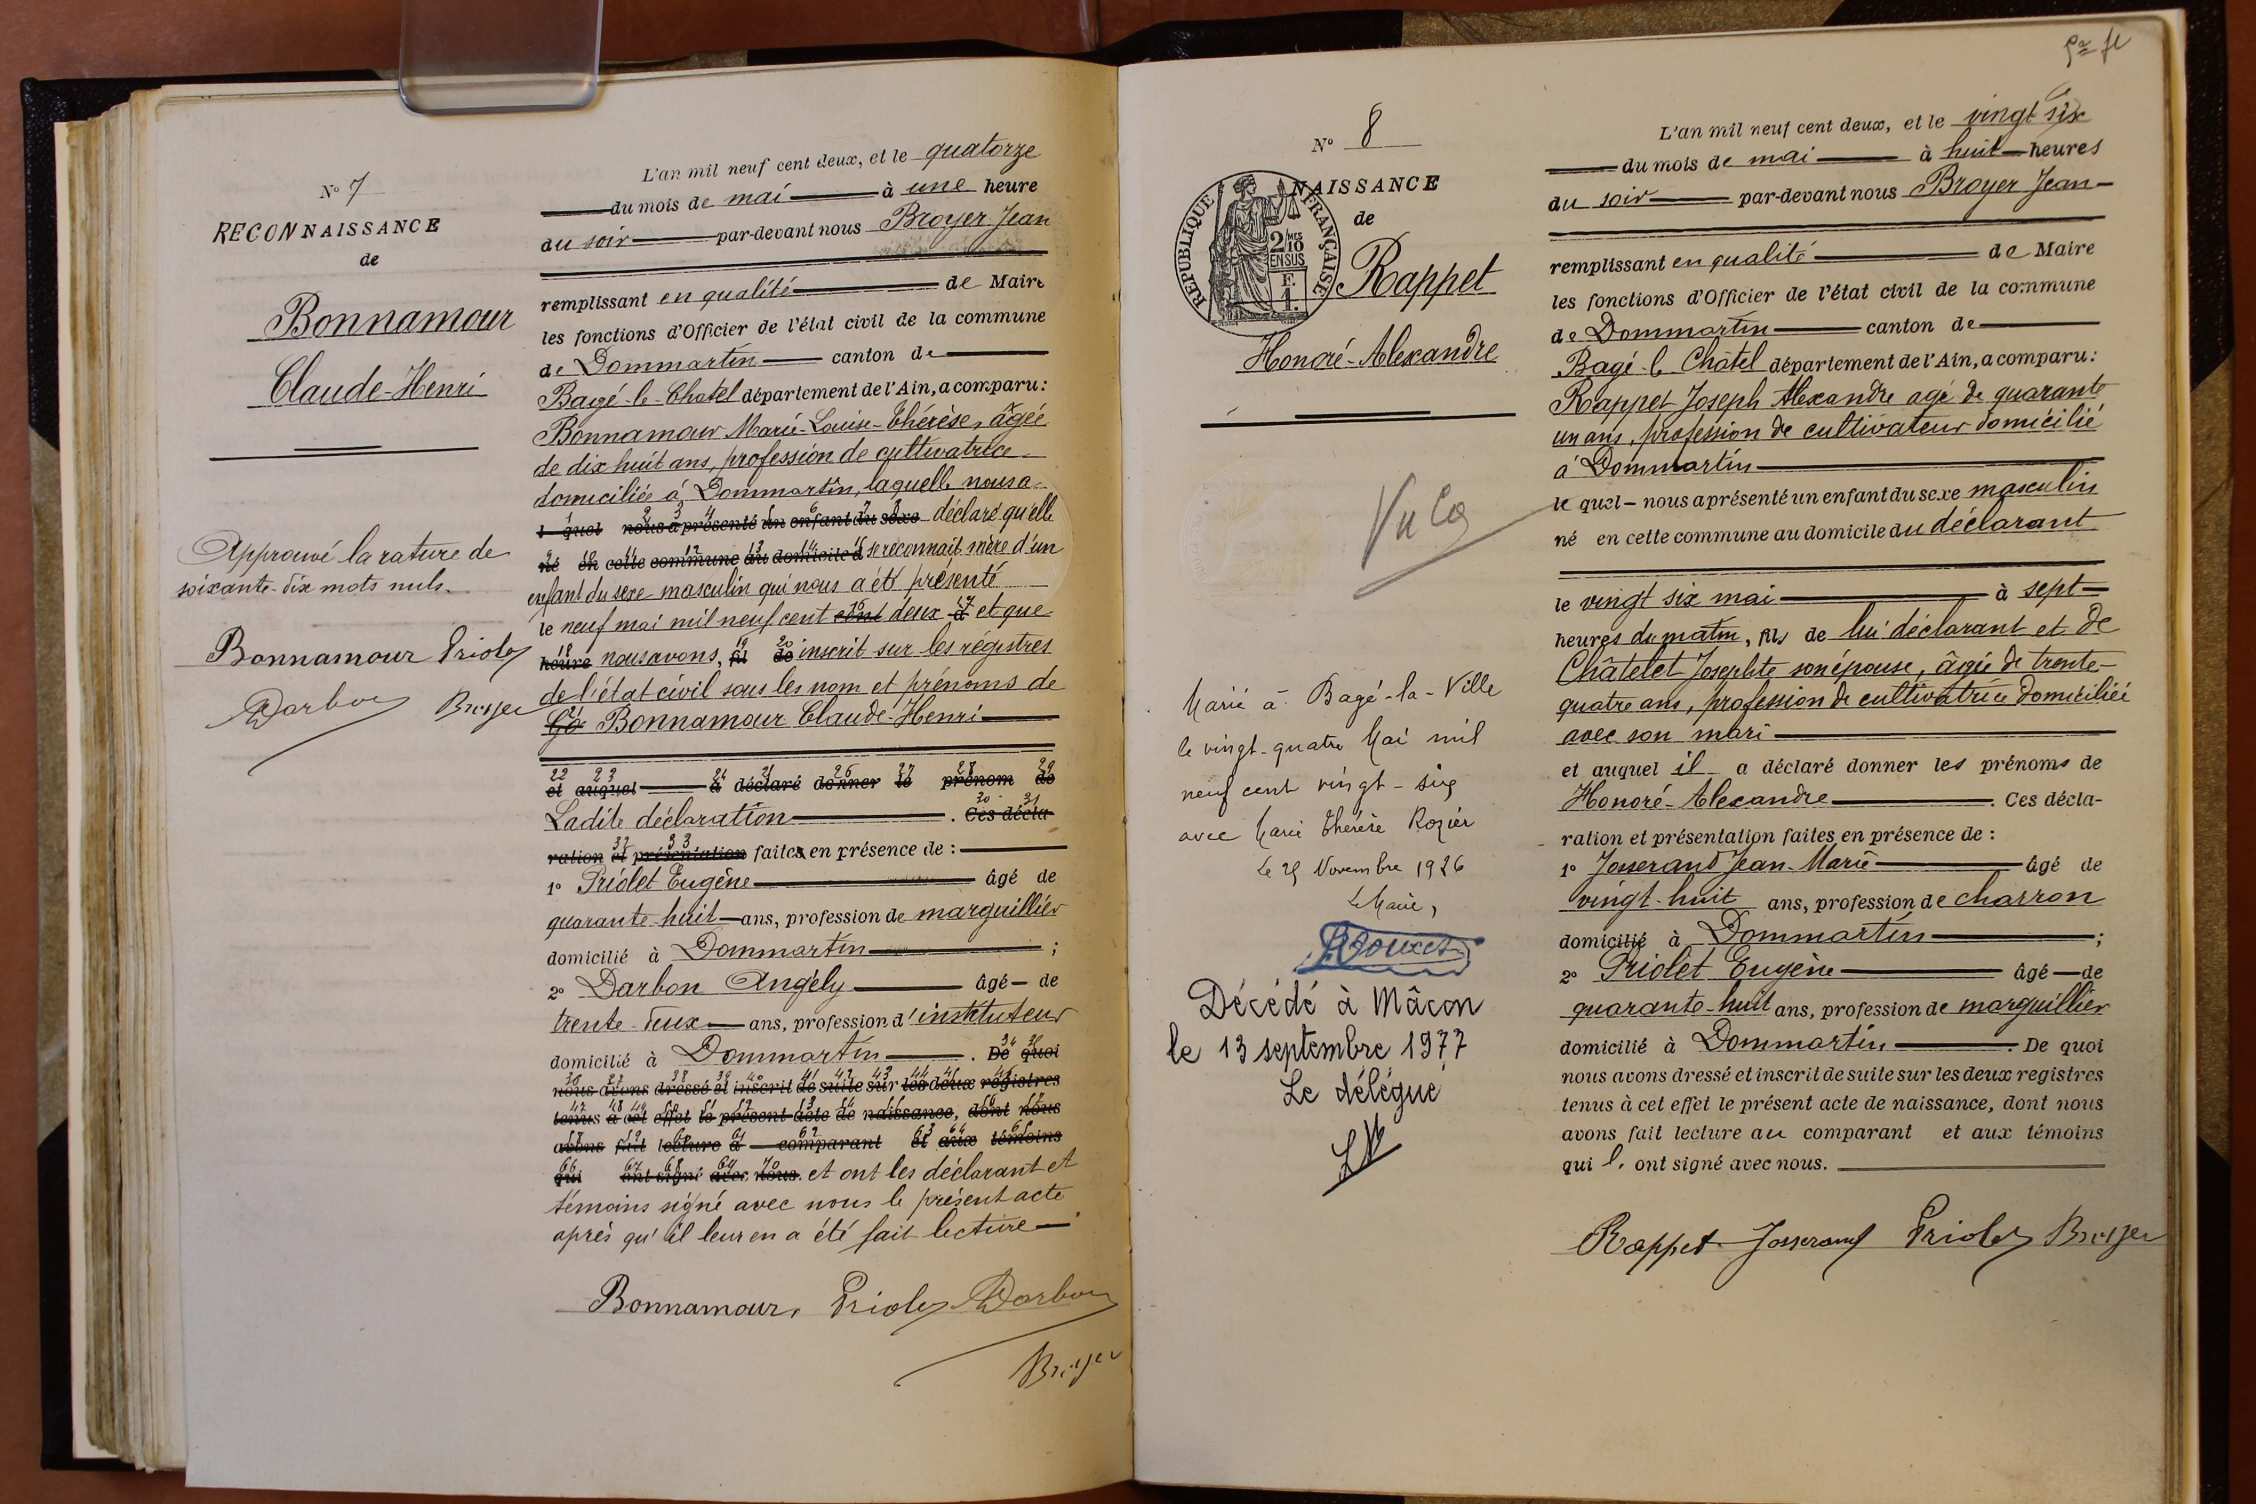 Nº 7
RECONNAISSANCE
de
Bonnamour
Claude-Henri
Approuvé la rature de
soixante-dix mots nuls.
Bonnamour Priolet
Darbon Broyer
L'an mil neuf cent deux, et le quatorze
du mois de mai à une heure
du soir par-devant nous Broyer Jean
remplissant en qualité de Maire
les fonctions d'Officier de l'état civil de la commune
de Dommartin canton de
Bagé-le-Chatel département de l'Ain, a comparu:
Bonnamour Marie-Louise-Thérèse, âgée
de dix huit ans, profession de cultivatrice
domiciliée à Dommartin, laquelle nous a
l quel nous a présenté un enfant du sexe déclaré qu'elle
né en cette commune au domicile d se reconnait mère d'un
enfant du sexe masculin qui nous a été présenté
le neuf mai mil neuf cent cent deux à et que
heure nous avons, fil de inscrit sur les régistres
de l'état civil sous les nom et prénoms de
Bonnamour Claude-Henri
et auquel a déclaré donner le prénom de
Ladite déclaration . Ces décla-
ration et présentation faites en présence de :
1º Priolet Eugène âgé de
quarante-huit ans, profession de marguillier
domicilié à Dommartin ;
2º Darbon Angély âgé de
trente-deux ans, profession d'instituteur
domicilié à Dommartin . De quoi
nous avons dressé et inscrit de suite sur les deux registres
tenus à cet effet le présent acte de naissance, dont nous
avons fait lecture à comparant et aux témoins
qui ont signé avec nous. et ont les déclarant et
témoins signé avec nous le présent acte
après qu'il leur en a été fait lecture
Bonnamour, Priolet Darbon
Broyer
Nº 8
NAISSANCE
de
RÉPUBLIQUE FRANÇAISE
2 MES
10
EN SUS
F.
1.
Rappet
Honoré-Alexandre
Marié à Bagé-la-Ville
le vingt-quatre Mai mil
neuf cent vingt-six
avec Marie Thérèse Rozier
Le 29 Novembre 1926
Le Maire,
Décédé à Mâcon
le 13 septembre 1977
Le délégué
L'an mil neuf cent deux, et le vingt six
du mois de mai à huit heures
du soir par-devant nous Broyer Jean
remplissant en qualité de Maire
les fonctions d'Officier de l'état civil de la commune
de Dommartin canton de
Bagé-le Châtel département de l'Ain, a comparu:
Rappet Joseph Alexandre agé de quarante
un ans, profession de cultivateur domicilié
à Dommartin
le quel nous a présenté un enfant du sexe masculin
né en cette commune au domicile du déclarant
le vingt six mai à sept
heures du matin, fils de lui déclarant et de
Châtelet Josephte son épouse, âgée de trente-
quatre ans, profession de cultivatrice domiciliée
avec son mari
et auquel il a déclaré donner les prénoms de
Honoré-Alexandre . Ces décla-
ration et présentation faites en présence de :
1º Josserand Jean-Marie âgé de
vingt-huit ans, profession de charron
domicilié à Dommartin ;
2º Priolet Eugène âgé de
quarante-huit ans, profession de marguillier
domicilié à Dommartin . De quoi
nous avons dressé et inscrit de suite sur les deux registres
tenus à cet effet le présent acte de naissance, dont nous
avons fait lecture au comparant et aux témoins
qui l. ont signé avec nous.
Rappet Josserand Priolet Broyer